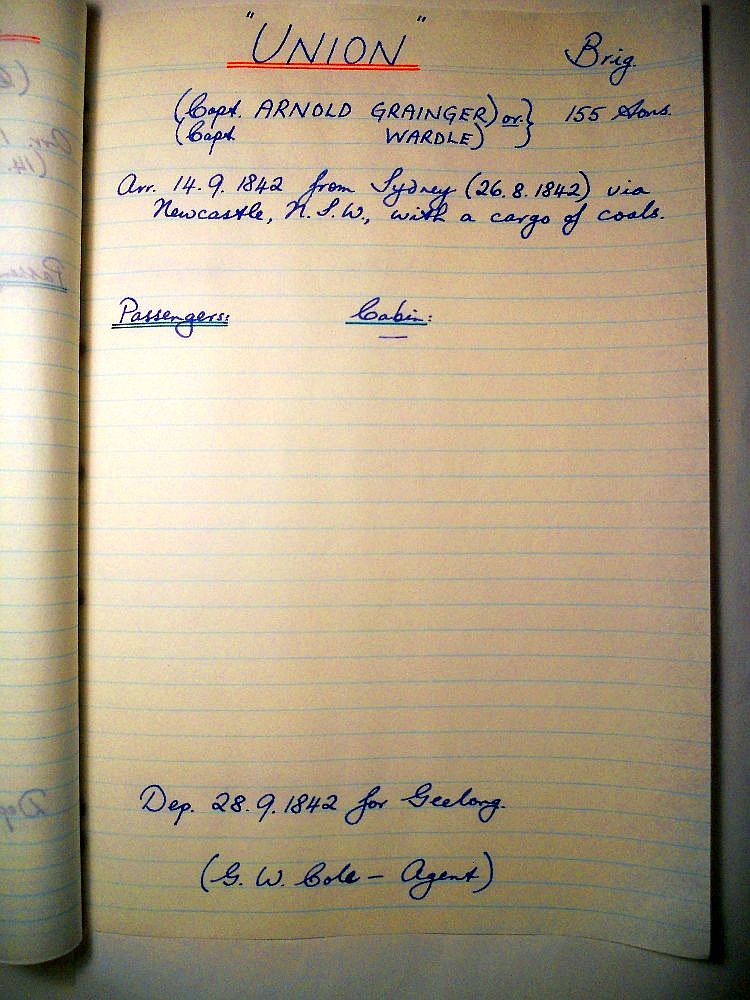 "UNION" Brig.
(Capt. ARNOLD GRAINGER) or } 155 tons.
(Capt. WARDLE) }
Arr. 14.9.1842 from Sydney (26.8.1842) via
Newcastle, N.S.W., with a cargo of coals.
Passengers: Cabin:
—
Dep. 28.9.1842 for Geelong.
(G. W. Cole – Agent)